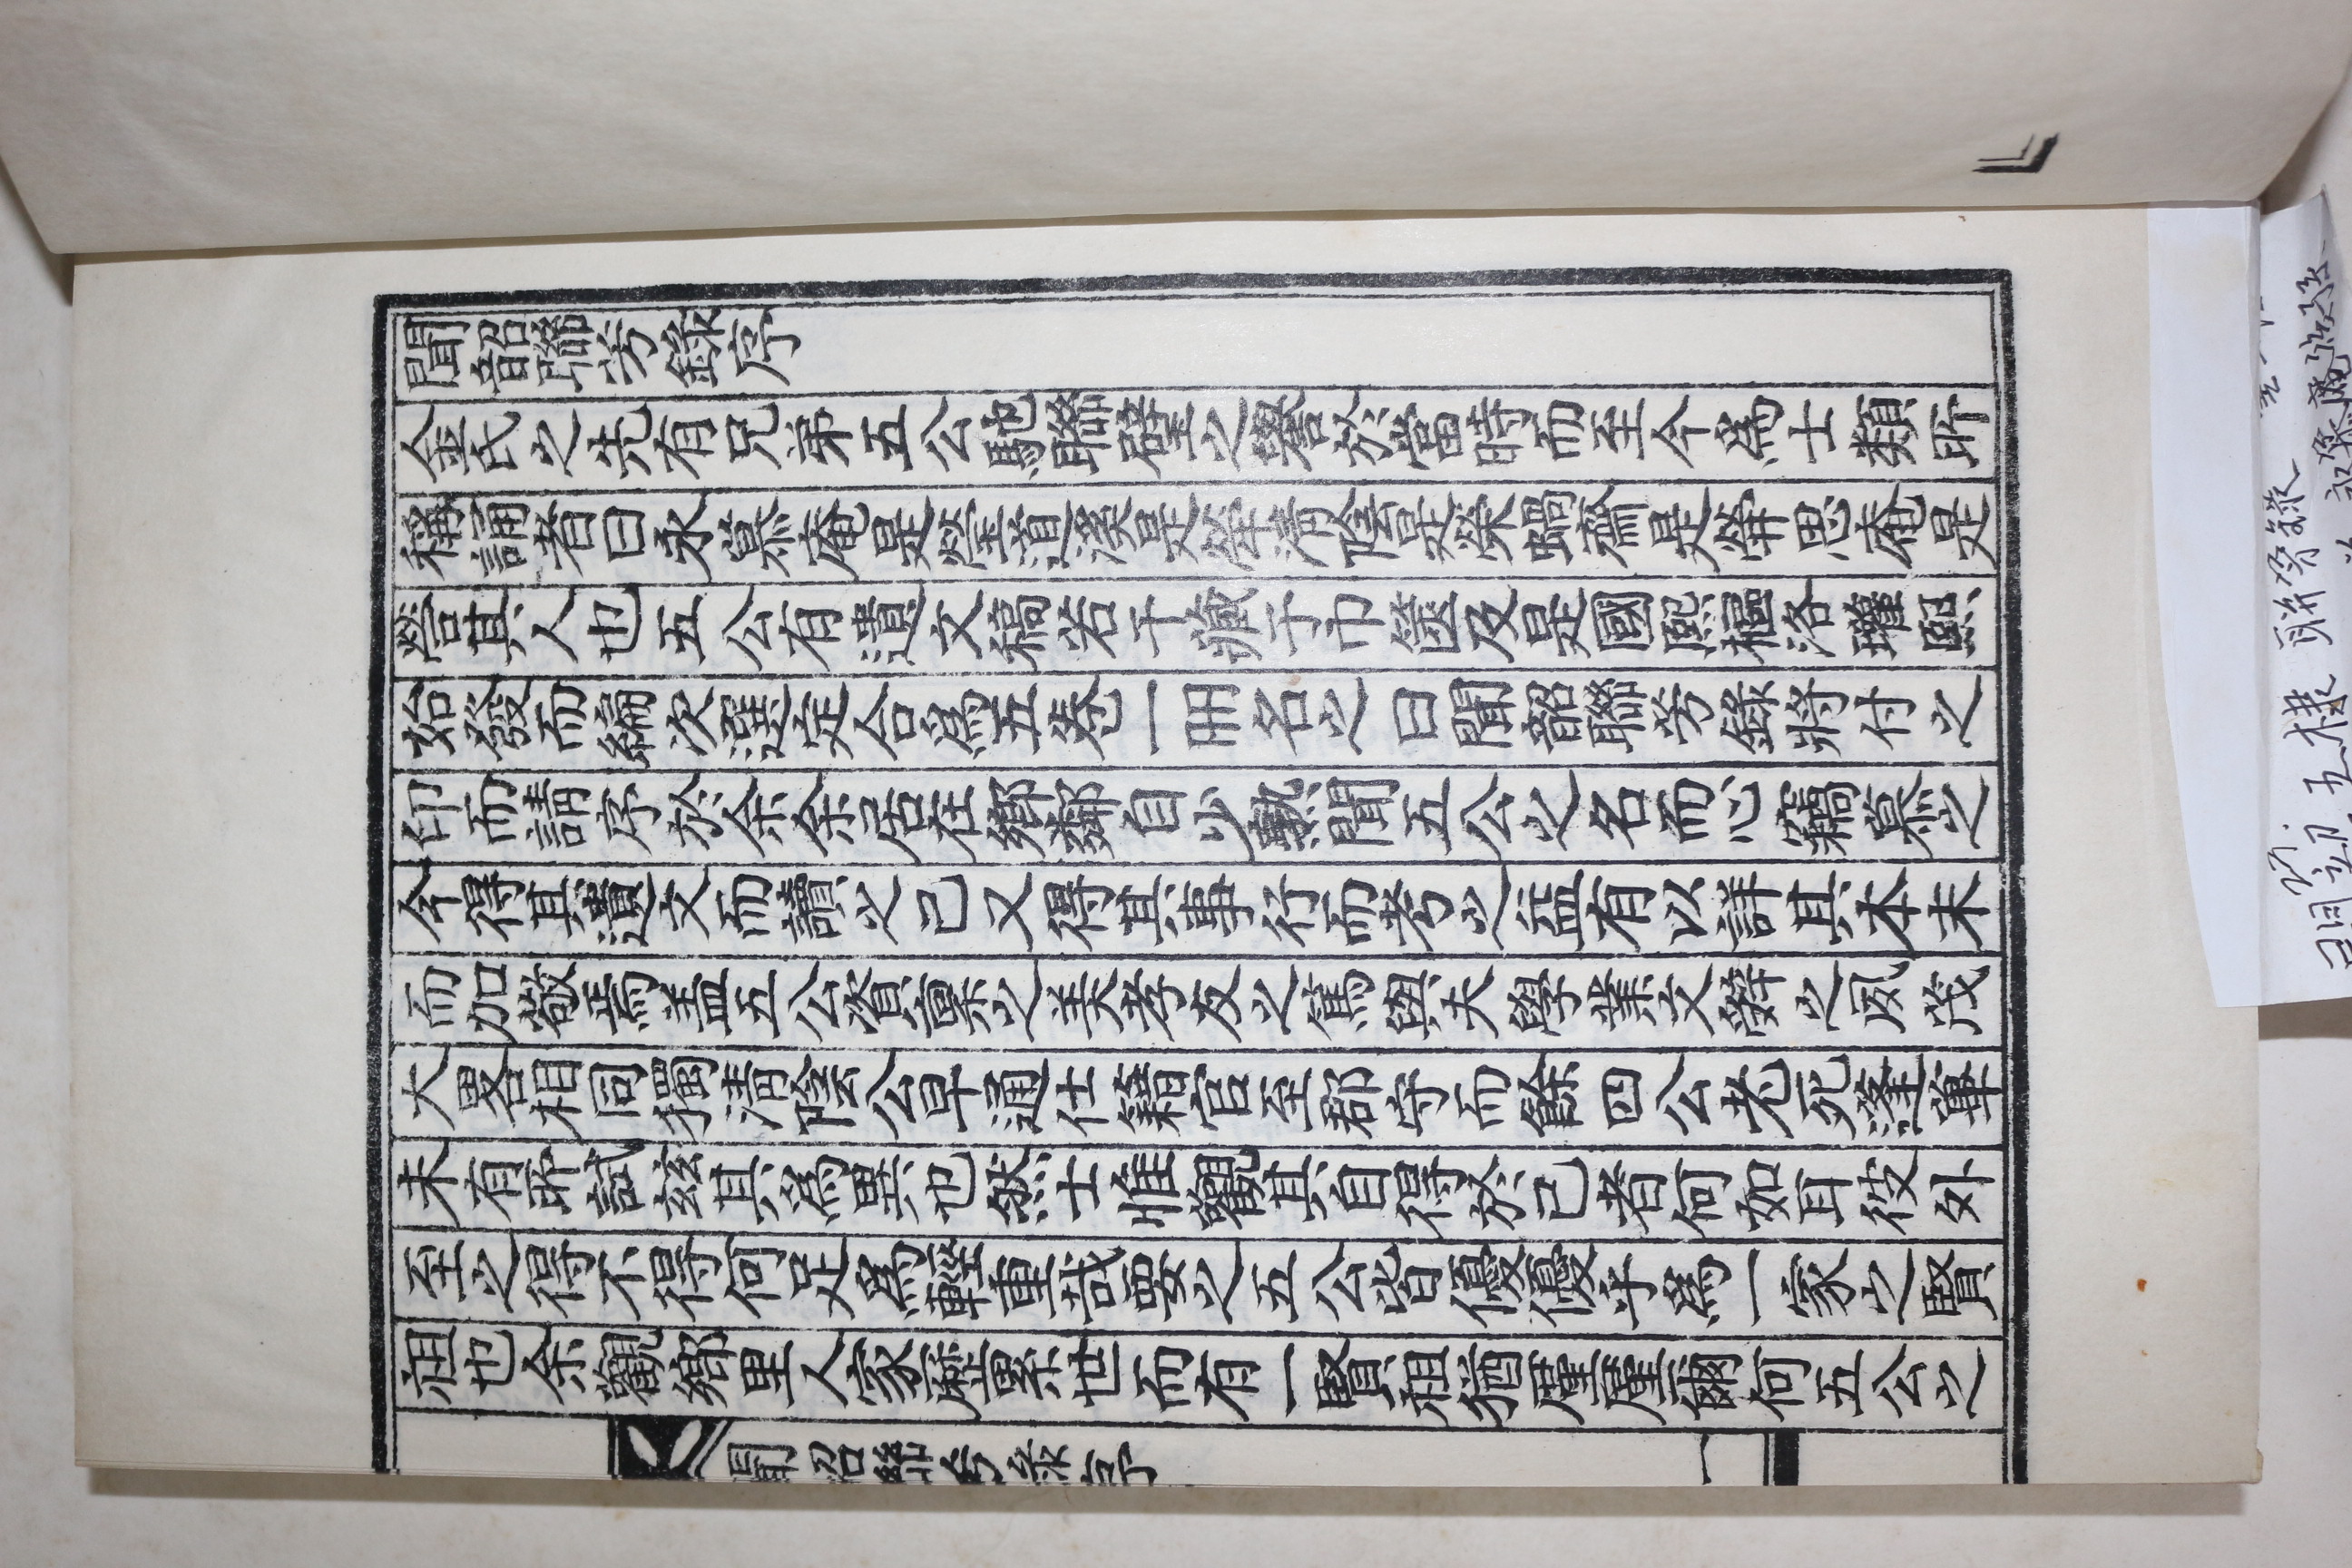 聞韶聯芳錄序
金氏之先有兄弟五公馳聯璧之譽於當時而至今爲士類所
稱誦者曰永慕庵是瑩道溪是犖淸陰是榮蝸齋是䇦思庵是
營其人也五公有遺文稿若干藏于巾篋及是國熙樞洛瓘熙
始發而編次選定合爲五卷一冊名之曰聞韶聯芳錄將付之
印而請序於余余居在鄕鄰自少熟聞五公之名而心竊慕之
今得其遺文而讀之已又得其事行而考之益有以詳其本末
而加敬焉盖五公資稟之美孝友之篤與夫學業文辭之夙茂
大畧相同獨淸陰公早通仕籍官至郡守而餘四公老死蓬蓽
未有所試玆其爲異也然士惟觀其自得於已者何如耳彼外
至之得不得何足爲輕重哉要之五公皆優優乎爲一家之賢
祖也余觀鄕里人家歷累世而有一賢祖猶厪厪爾何五公之
聞韶聯芳錄序
一
27.
聞韶五棣聯芳錄